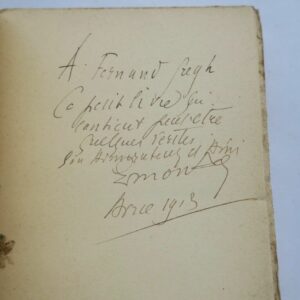 A Fernand Gregh
Ce petit livre qui
contient peut-être
quelques vérités
Son Admirateur et Ami
1913